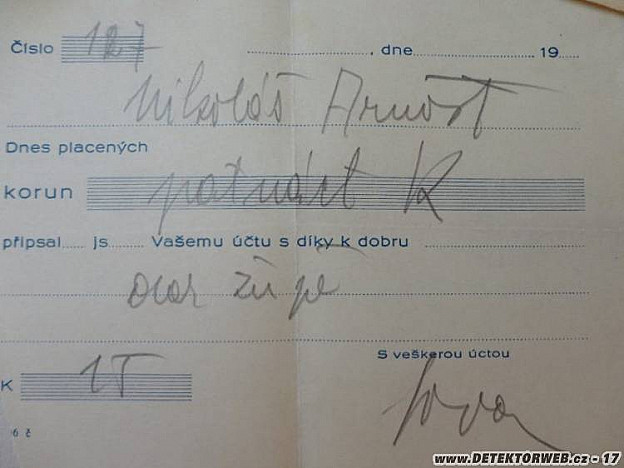 Číslo 127 , dne 19
Mikoláš Arnošt
Dnes placených
korun patnáct K
připsal js Vašemu účtu s díky k dobru
župě
S veškerou úctou
K 15
6 ž
www.DETEKTORWEB.cz - 17